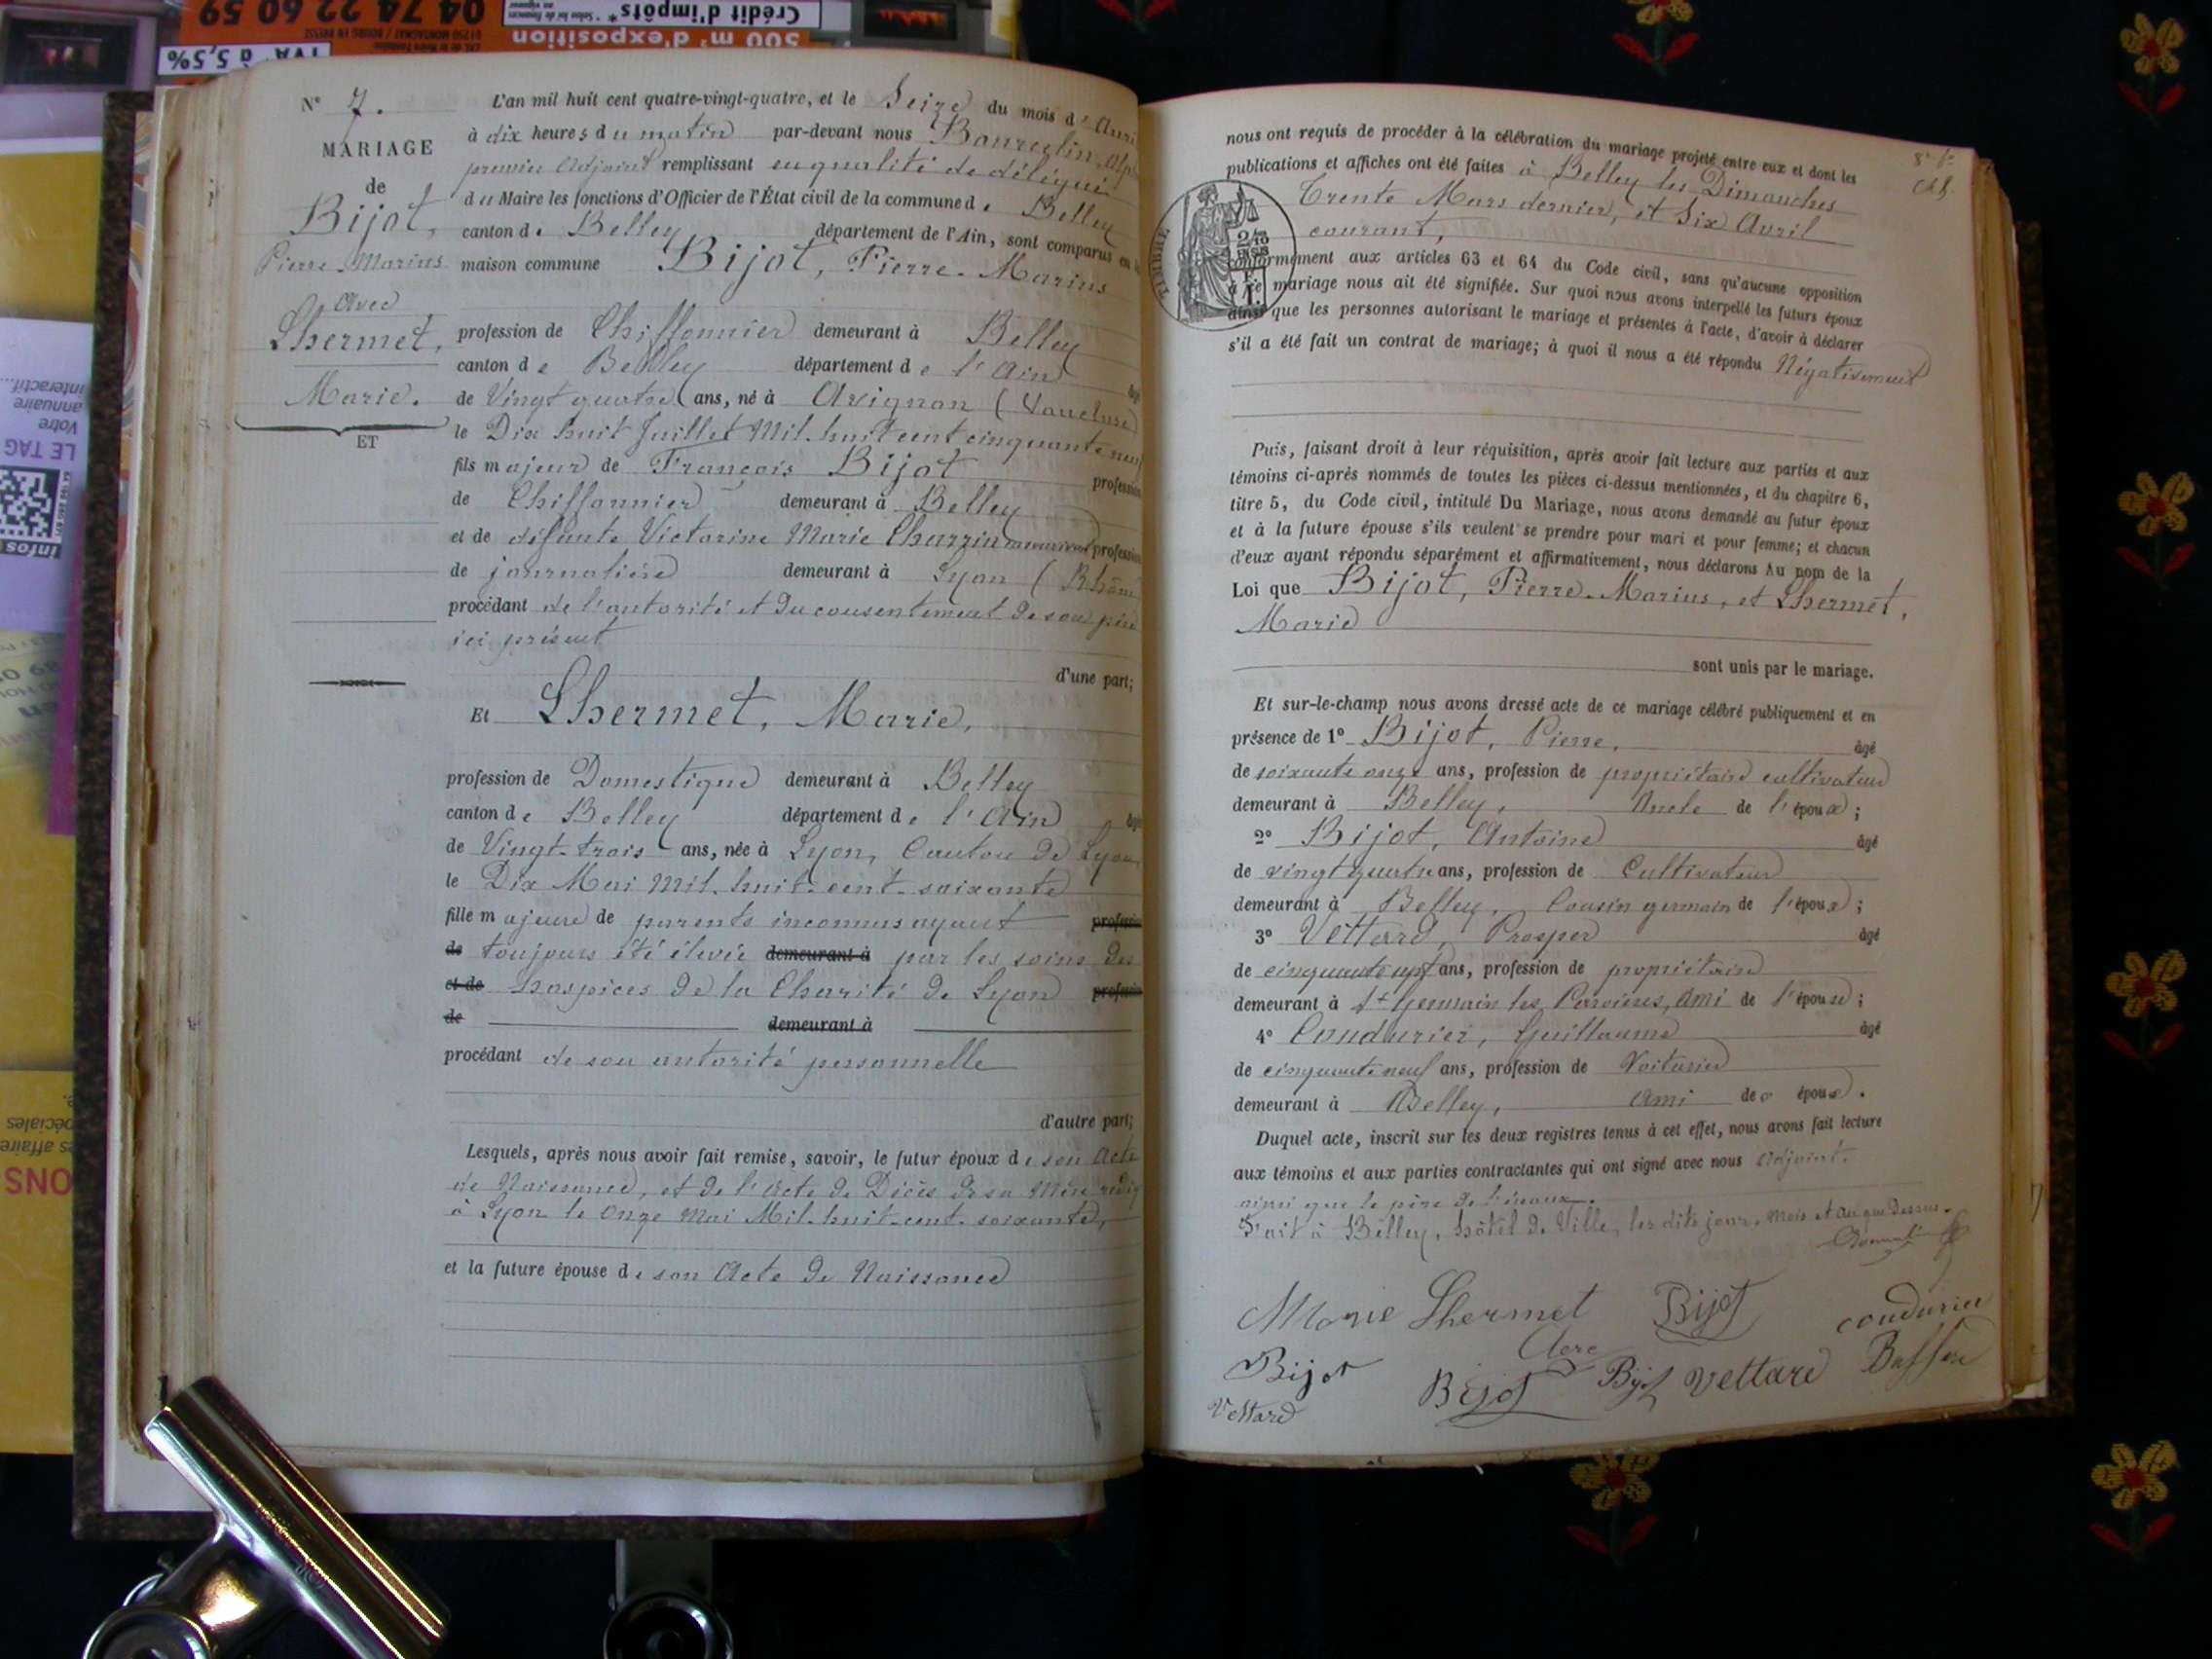 04 74 22 60 59
Crédit d'impôts*
500 m² d'exposition
TVA à 5,5%
interactif...
annuaire
Votre
LE TAG
infos
N° 7.
MARIAGE
de
Bijot,
Pierre-Marius
Avec
Lhermet,
Marie.
ET
L'an mil huit cent quatre-vingt-quatre, et le Seize du mois d'Avri
à dix heures du matin par-devant nous
premier Adjoint remplissant en qualité de délégué
du Maire les fonctions d'Officier de l'État civil de la commune de Belley
canton de Belley département de l'Ain, sont comparus en la
maison commune Bijot, Pierre-Marius
profession de Chiffonnier demeurant à Belley
canton de Belley département de l'Ain âgé
de Vingt quatre ans, né à Avignon (Vaucluse)
le Dix huit Juillet Mil-huit cent cinquante neuf
fils majeur de François Bijot profession
de Chiffonnier demeurant à Belley
et de défunte Victorine Marie profession
de journalière demeurant à Lyon (Rhône
procédant de l'autorité et du consentement de son père
ici présent
d'une part;
Et Lhermet, Marie,
profession de Domestique demeurant à Belley
canton de Belley département de l'Ain âgé
de Vingt-trois ans, née à Lyon, Canton de Lyon
le Dix Mai Mil-huit-cent-soixante
fille majeure de parents inconnus ayant profession
de toujours été élevée demeurant à par les soins des
et de hospices de la Charité de Lyon profession
de demeurant à
procédant de son autorité personnelle
d'autre part;
Lesquels, après nous avoir fait remise, savoir, le futur époux de son Acte
de Naissance, et de l'Acte de Décès de sa Mère rédigé
à Lyon le Onze Mai Mil-huit-cent-soixante,
et la future épouse de son Acte de Naissance
nous ont requis de procéder à la célébration du mariage projeté entre eux et dont les
publications et affiches ont été faites à Belley les Dimanches
Trente Mars dernier, et Six Avril
courant,
TIMBRE
conformément aux articles 63 et 64 du Code civil, sans qu'aucune opposition
à ce mariage nous ait été signifiée. Sur quoi nous avons interpellé les futurs époux
ainsi que les personnes autorisant le mariage et présentes à l'acte, d'avoir à déclarer
s'il a été fait un contrat de mariage; à quoi il nous a été répondu Négativement
Puis, faisant droit à leur réquisition, après avoir fait lecture aux parties et aux
témoins ci-après nommés de toutes les pièces ci-dessus mentionnées, et du chapitre 6,
titre 5, du Code civil, intitulé Du Mariage, nous avons demandé au futur époux
et à la future épouse s'ils veulent se prendre pour mari et pour femme; et chacun
d'eux ayant répondu séparément et affirmativement, nous déclarons Au nom de la
Loi que Bijot, Pierre-Marius, et Lhermet,
Marie
sont unis par le mariage.
Et sur-le-champ nous avons dressé acte de ce mariage célébré publiquement et en
présence de 1° Bijot, Pierre, âgé
de soixante onze ans, profession de propriétaire cultivateur
demeurant à Belley, Oncle de l'époux;
2° Bijot, Antoine âgé
de vingt quatre ans, profession de Cultivateur
demeurant à Belley, Cousin germain de l'époux;
3° Vettard, Prosper âgé
de cinquante sept ans, profession de propriétaire
demeurant à St Germain les Paroisses, ami de l'épouse;
4° Coudurier, Guillaume âgé
de cinquante neuf ans, profession de Voiturier
demeurant à Belley, Ami de époux.
Duquel acte, inscrit sur les deux registres tenus à cet effet, nous avons fait lecture
aux témoins et aux parties contractantes qui ont signé avec nous Adjoint.
ainsi que le père de l'époux.
Fait à Belley, hôtel de Ville, les dits jour, mois et an que dessus.
Marie Lhermet Bijot coudurier
Bijot Bijot Bijot Vettard
Vettard